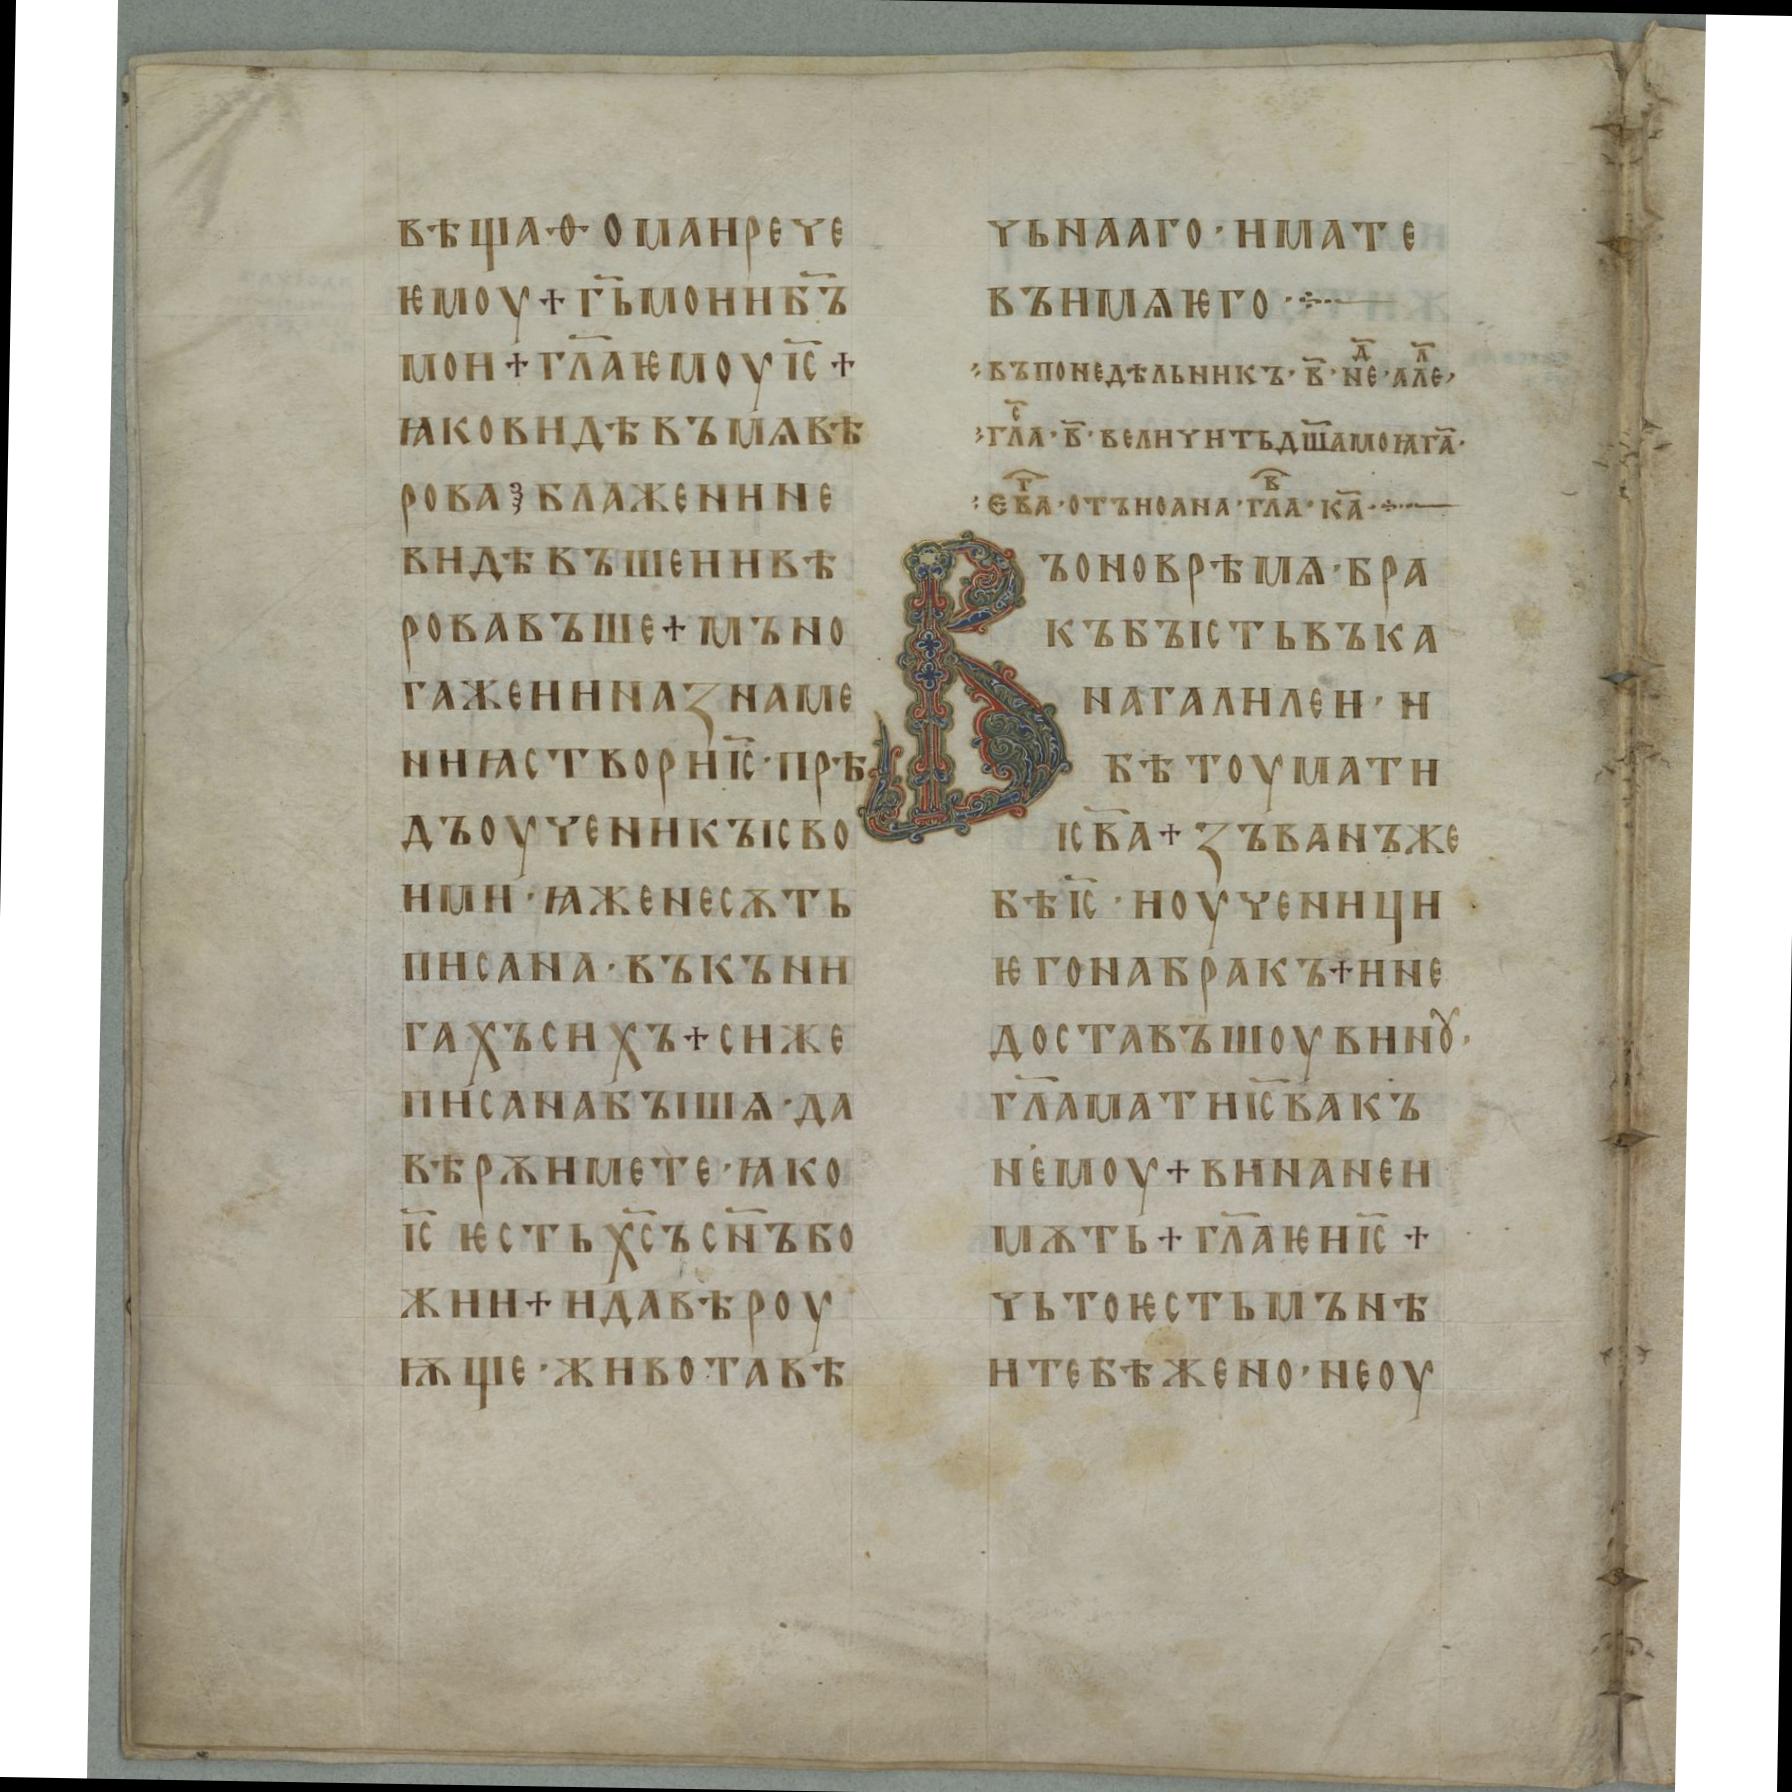 вѣща·ѳ·омаирече
ѥмоу+г҃ьмоииб҃ъ
мои+гл҃аѥмоуі҃с+
ꙗковидѣвъмѧвѣ
рова·блаженине
видѣвъшеивѣ
ровавъше+мъно
гажеиинаꙁнаме
ниꙗствориі҃с·прѣ
дъоученикъісво
ими·ꙗженесѫть
писана·въкъни
гахъсихъ+сиже
писанабъішѧ·да
вѣрѫимете·ꙗко
і҃с ѥстьх҃съсн҃ъбо
жии+идавѣроу
ѭще·животавѣ
чьнааго·имате
въимѧѥго·
въпонедѣльникъ·в҃·недⷣ·алеⷧ·
глаⷭ·в҃·величитьдш҃амоꙗга҃·
ева·отъиоана·гла·ка҃·
Въоноврѣмѧ·бра
къбъістьвъка
нагалилеи·и
бѣтоумати
ісв҃а+ꙁъванъже
бѣі҃с·иоученици
ѥгонабракъ+ине
доставъшоувинꙋ·
гл҃аматиі҃свакъ
немоу+винанеи
мѫть+гл҃аѥиі҃с+
чьтоѥстьмънѣ
итебѣжено·неоу